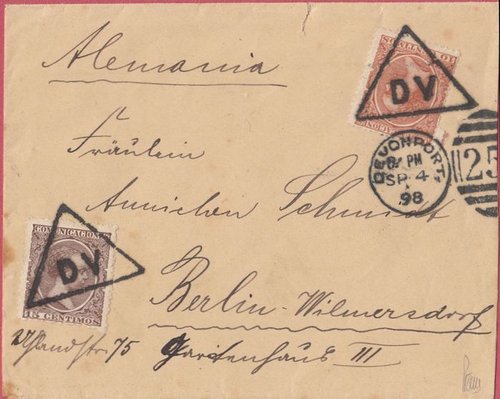 Alemania
DV
DEVONPORT.
8 PM
SP 4
98
25
Fräulein
Annichen Schmidt
COMUNICACIONES
DV
15 CENTIMOS
Berlin-Wilmersdorf
Uhlandstr. 75 Gartenhaus III